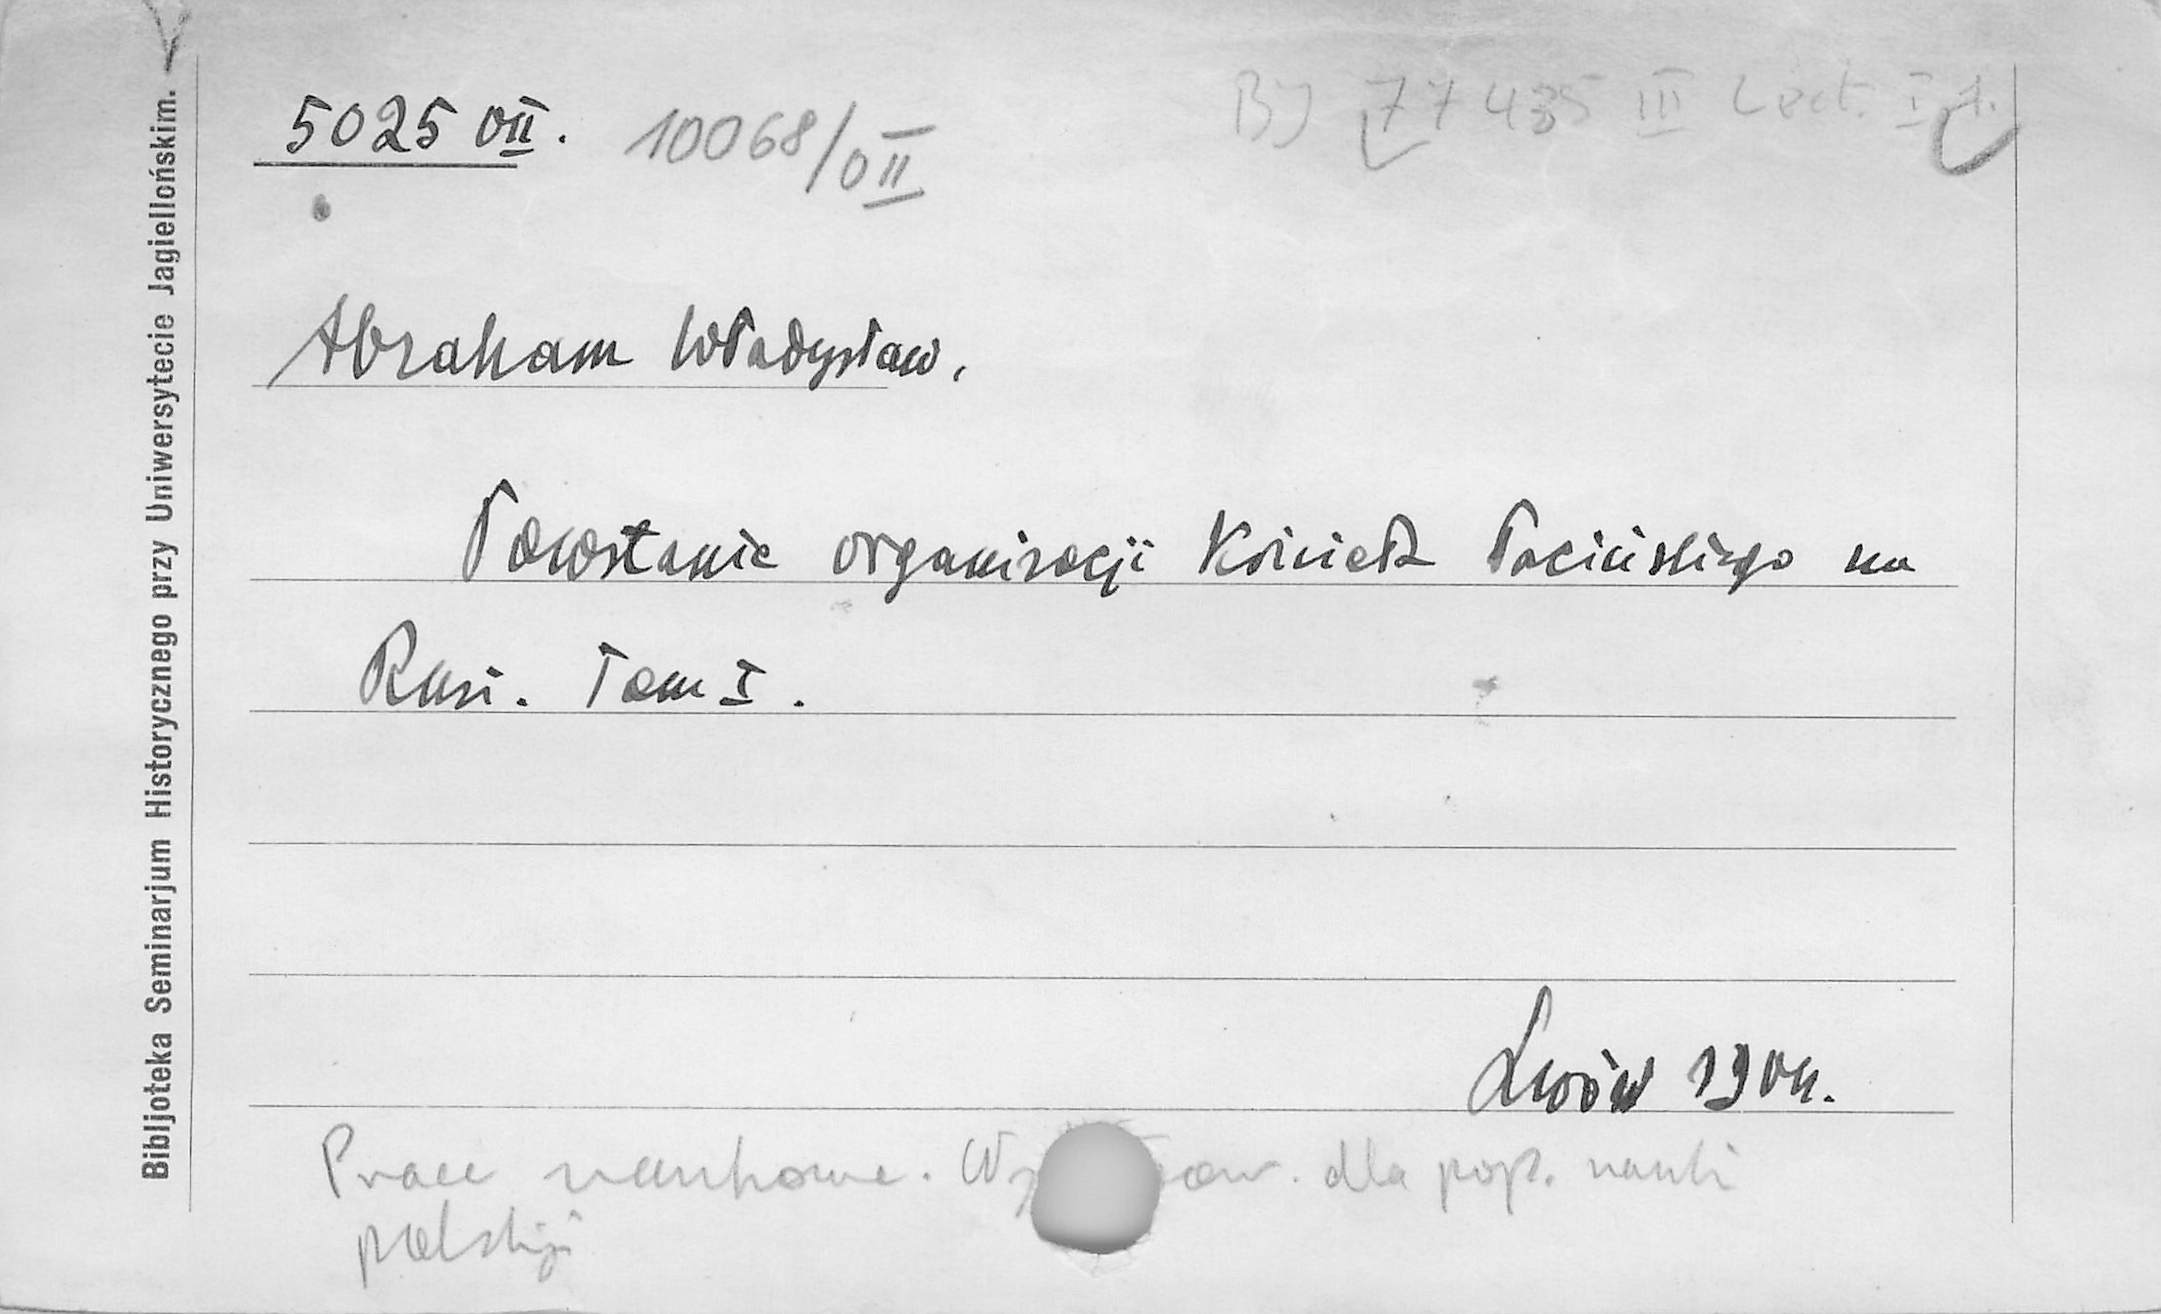 BJ 77435 III Lect. I 1.
5025 OII. 10068/OII
Abraham Władysław.
Powstanie organizacji Kościoła łacińskiego na
Rusi. Tom I.
Lwów 1904.
Prace naukowe. Tow. dla pop. nauki
polskiej
Bibljoteka Seminarjum Historycznego przy Uniwersytecie Jagiellońskim.